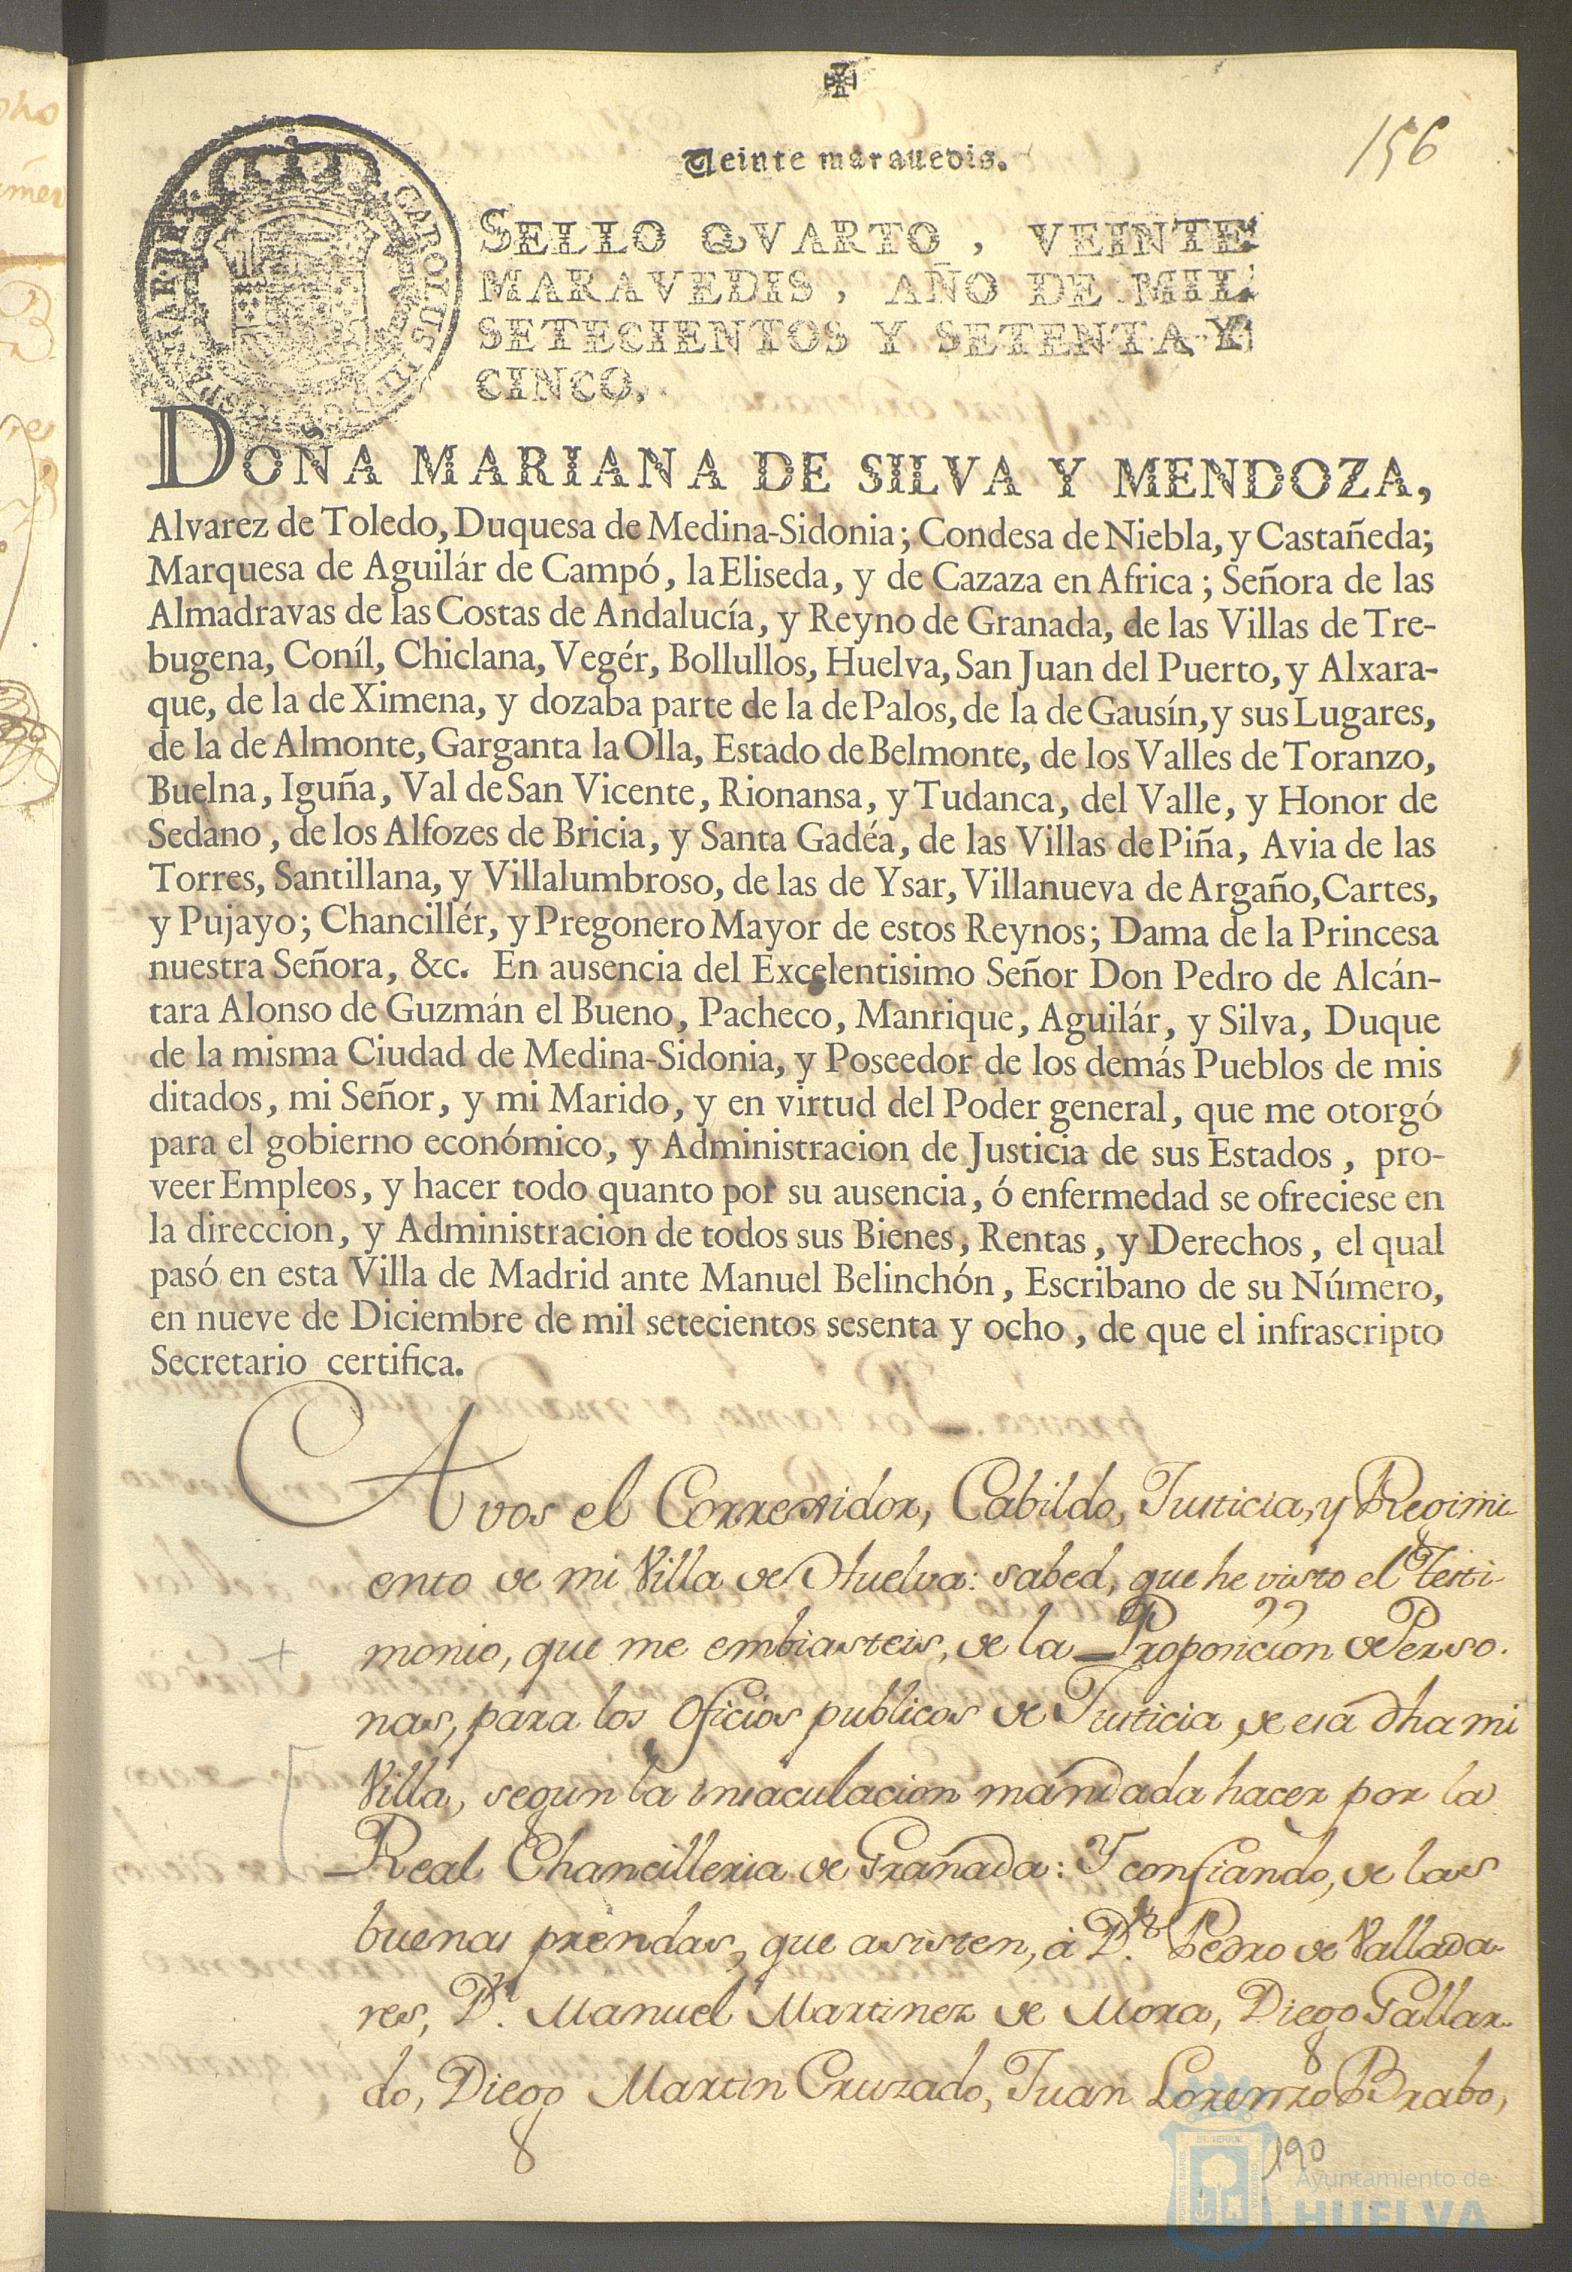 Veinte marauedis.
156
CAROLUS III D. G.
SELLO QVARTO, VEINTE
MARAVEDIS, AÑO DE MIL
SETECIENTOS Y SETENTA Y
CINCO.
DOÑA MARIANA DE SILVA Y MENDOZA,
Alvarez de Toledo, Duquesa de Medina-Sidonia; Condesa de Niebla, y Castañeda;
Marquesa de Aguilár de Campó, la Eliseda, y de Cazaza en Africa; Señora de las
Almadravas de las Costas de Andalucía, y Reyno de Granada, de las Villas de Tre-
bugena, Coníl, Chiclana, Vegér, Bollullos, Huelva, San Juan del Puerto, y Alxara-
que, de la de Ximena, y dozaba parte de la de Palos, de la de Gausín, y sus Lugares,
de la de Almonte, Garganta la Olla, Estado de Belmonte, de los Valles de Toranzo,
Buelna, Iguña, Val de San Vicente, Rionansa, y Tudanca, del Valle, y Honor de
Sedano, de los Alfozes de Bricia, y Santa Gadéa, de las Villas de Piña, Avia de las
Torres, Santillana, y Villalumbroso, de las de Ysar, Villanueva de Argaño, Cartes,
y Pujayo; Chancillér, y Pregonero Mayor de estos Reynos; Dama de la Princesa
nuestra Señora, &c. En ausencia del Excelentisimo Señor Don Pedro de Alcán-
tara Alonso de Guzmán el Bueno, Pacheco, Manrique, Aguilár, y Silva, Duque
de la misma Ciudad de Medina-Sidonia, y Poseedor de los demás Pueblos de mis
ditados, mi Señor, y mi Marido, y en virtud del Poder general, que me otorgó
para el gobierno económico, y Administracion de Justicia de sus Estados, pro-
veer Empleos, y hacer todo quanto por su ausencia, ó enfermedad se ofreciese en
la direccion, y Administracion de todos sus Bienes, Rentas, y Derechos, el qual
pasó en esta Villa de Madrid ante Manuel Belinchón, Escribano de su Número,
en nueve de Diciembre de mil setecientos sesenta y ocho, de que el infrascripto
Secretario certifica.
A vos el Corregidor, Cabildo, Justicia, y Regimi-
ento de mi Villa de Huelva: sabed, que he visto el Testi-
monio, que me embiasteis, de la Proposicion de Perso-
nas, para los Oficios publicos de Justicia, de esa dha mi
Villa, segun la insaculacion mandada hacer por la
Real Chancilleria de Granada: Y confiando, de las
buenas prendas, que asisten, á Dn. Pedro de Vallada-
res, Dn. Manuel Martinez de Mora, Diego Gallar-
do, Diego Martin Cruzado, Juan Lorenzo Brabo,
190
Ayuntamiento de
HUELVA